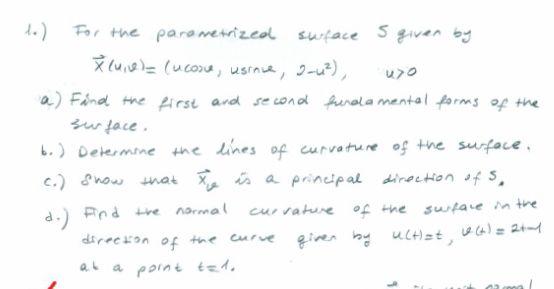 1.) For the parametrized surface S given by
x⃗(u,v)= (ucosv, usinv, 2-u²), u>0
a) Find the first and second fundamental forms of the
surface.
b.) Determine the lines of curvature of the surface.
c.) Show that x⃗ᵥ is a principal direction of S.
d.) Find the normal curvature of the surface in the
direction of the curve given by u(t)=t, v(t)=2t-1
at a point t=1.